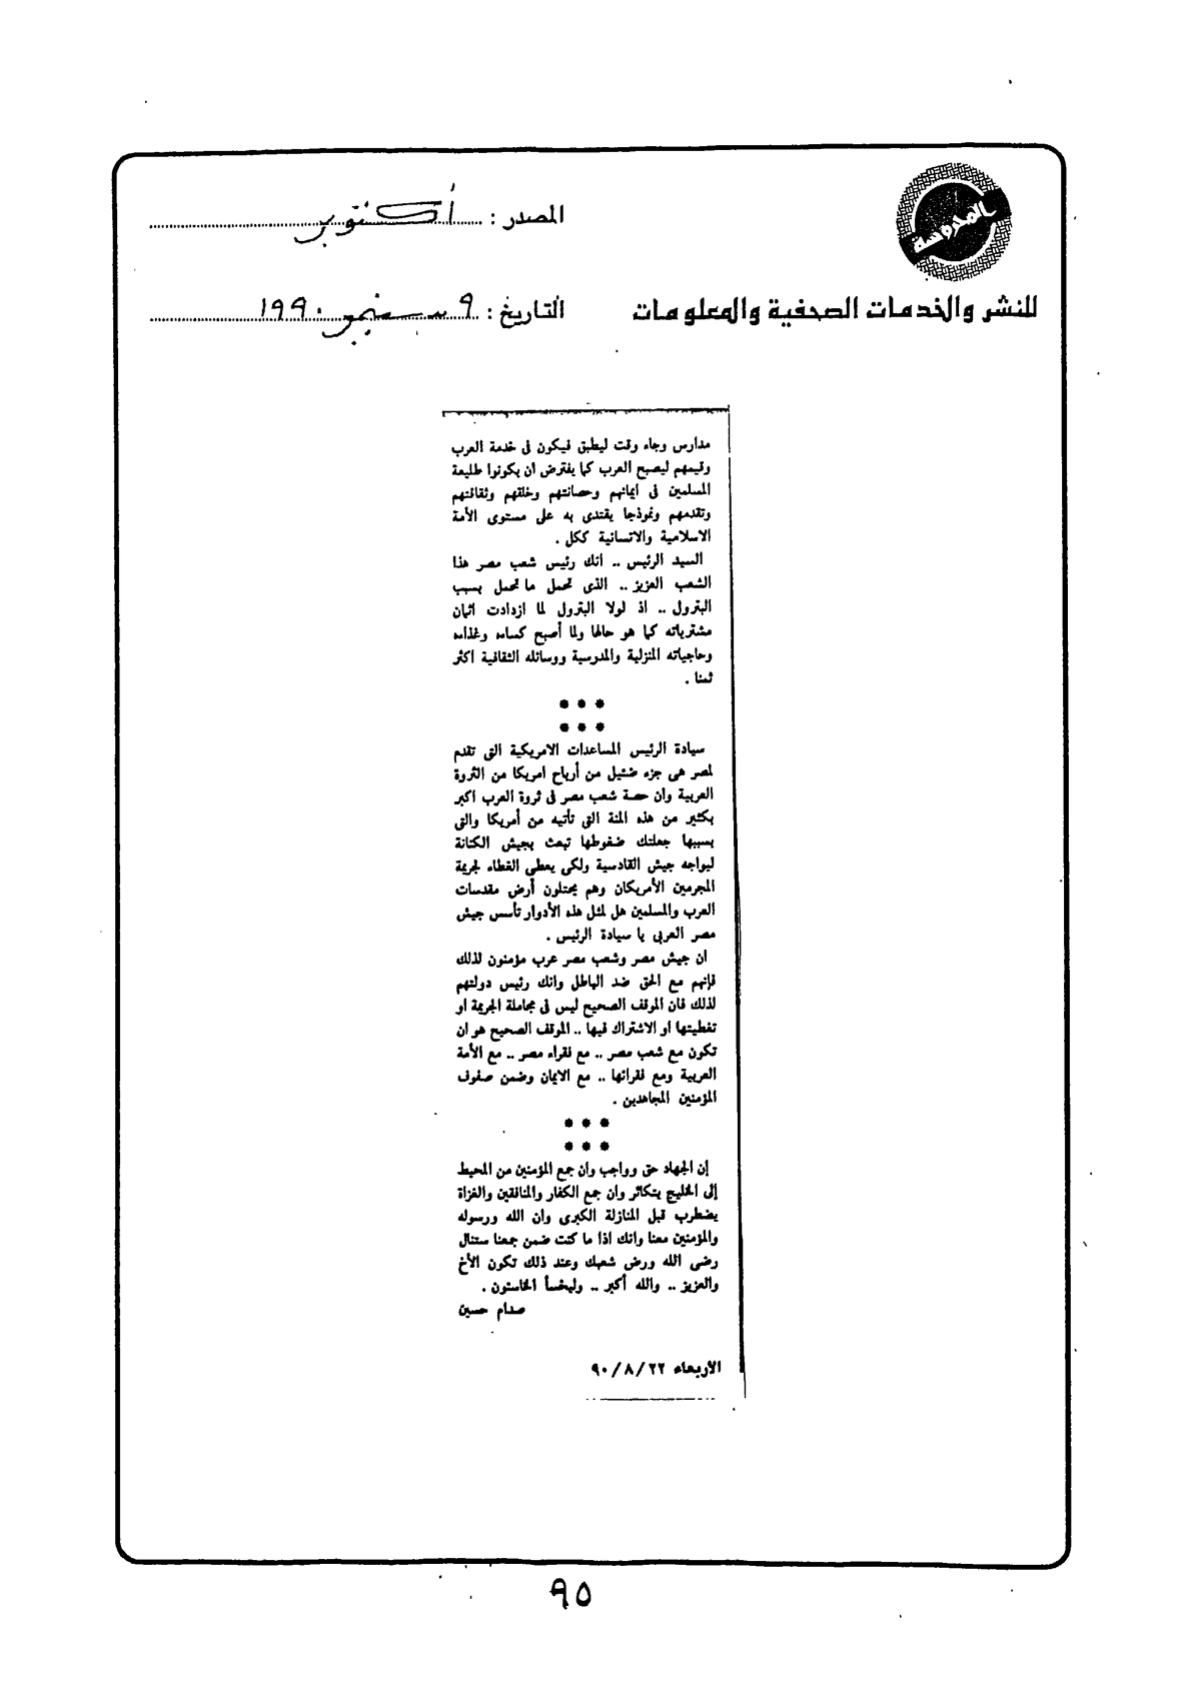 المحروسة
المصدر : أكتوبر
للنشر والخدمات الصحفية والمعلومات
التاريخ : ٩ سبتمبر ١٩٩٠
مدارس وجاء وقت ليطبق فيكون فى خدمة العرب
وقيمهم ليصبح العرب كما يفترض ان يكونوا طليعة
المسلمين فى ايمانهم وحصانتهم وخلقهم وثقافتهم
وتقدمهم ونموذجا يقتدى به على مستوى الأمة
الاسلامية والانسانية ككل .
السيد الرئيس .. انك رئيس شعب مصر هذا
الشعب العزيز .. الذى تحمل ما تحمل بسبب
البترول .. اذ لولا البترول لما ازدادت اثمان
مشترياته كما هو حالها ولما أصبح كساءه وغذاءه
وحاجياته المنزلية والمدرسية ووسائله الثقافية اكثر
ثمنا .
* * *
* * *
سيادة الرئيس المساعدات الامريكية التى تقدم
لمصر هى جزء ضئيل من أرباح امريكا من الثروة
العربية وان حصة شعب مصر فى ثروة العرب اكبر
بكثير من هذه المنة التى تأتيه من أمريكا والتى
بسببها جعلتك ضغوطها تبعث بجيش الكنانة
ليواجه جيش القادسية ولكى يعطى الغطاء لجريمة
المجرمين الأمريكان وهم يحتلون أرض مقدسات
العرب والمسلمين هل لمثل هذه الأدوار تأسس جيش
مصر العربى يا سيادة الرئيس .
ان جيش مصر وشعب مصر عرب مؤمنون لذلك
فإنهم مع الحق ضد الباطل وانك رئيس دولتهم
لذلك فان الموقف الصحيح ليس فى مجاملة الجريمة او
تغطيتها او الاشتراك فيها .. الموقف الصحيح هو ان
تكون مع شعب مصر .. مع فقراء مصر .. مع الأمة
العربية ومع فقرائها .. مع الايمان وضمن صفوف
المؤمنين المجاهدين .
* * *
* * *
إن الجهاد حق وواجب وان جمع المؤمنين من المحيط
إلى الخليج يتكاثر وان جمع الكفار والمنافقين والغزاة
يضطرب قبل المنازلة الكبرى وان الله ورسوله
والمؤمنين معنا وانك اذا ما كنت ضمن جمعنا ستنال
رضى الله ورض شعبك وعند ذلك تكون الأخ
والعزيز .. والله أكبر .. وليخسأ الخاسئون .
صدام حسين
الأربعاء ٢٢/٨/٩٠
٩٥